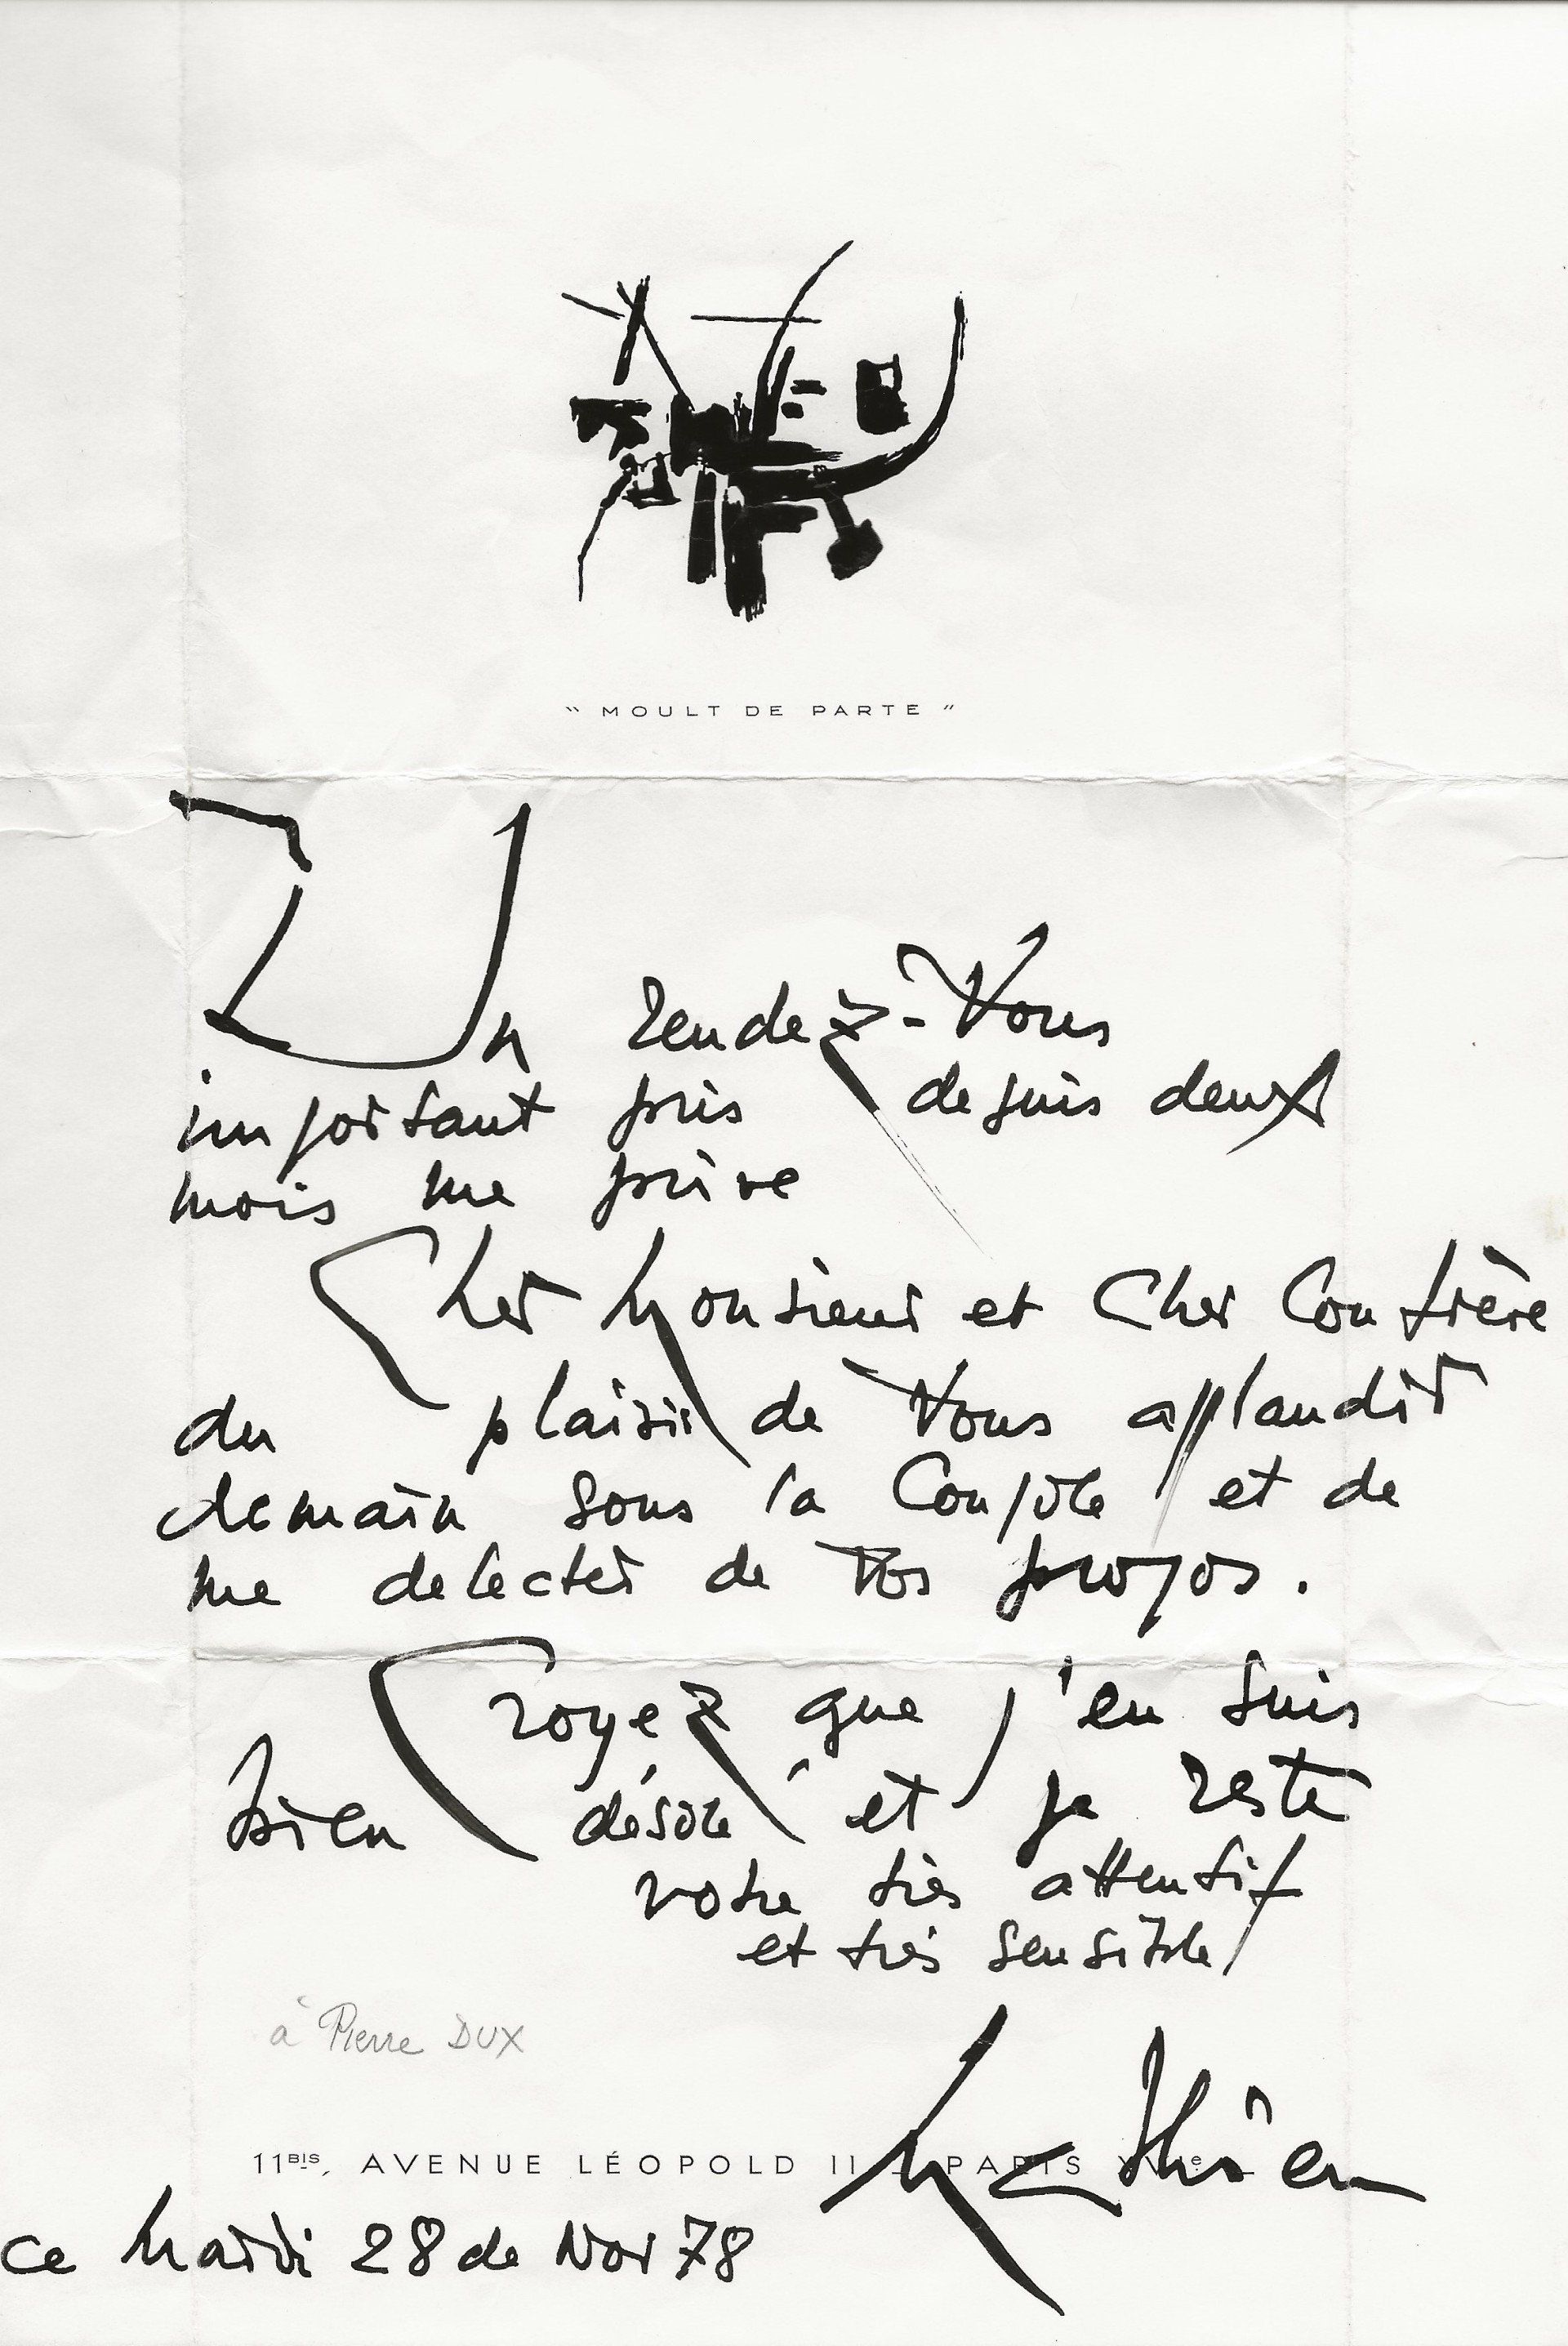 " MOULT DE PARTE "
Un rendez-Vous
important pris depuis deux
mois me prive
Cher Monsieur et Cher Confrère
du plaisir de Vous applaudir
demain sous la Coupole et de
me delecter de Vos propos.
Croyez que j'en suis
bien désolé et je reste
votre très attentif
et très sensible
à Pierre DUX
Mathieu
11BIS, AVENUE LÉOPOLD II _ PARIS
ce Mardi 28 de Nov 78